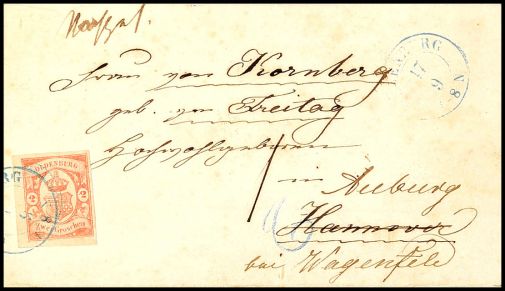 Frau von Kornberg
geb. von Freitag
Hochwohlgeboren
in Auburg
Hannover
bei Wagenfeld
OLDENBURG
2 2
Zwei Groschen
RG
17
9
8